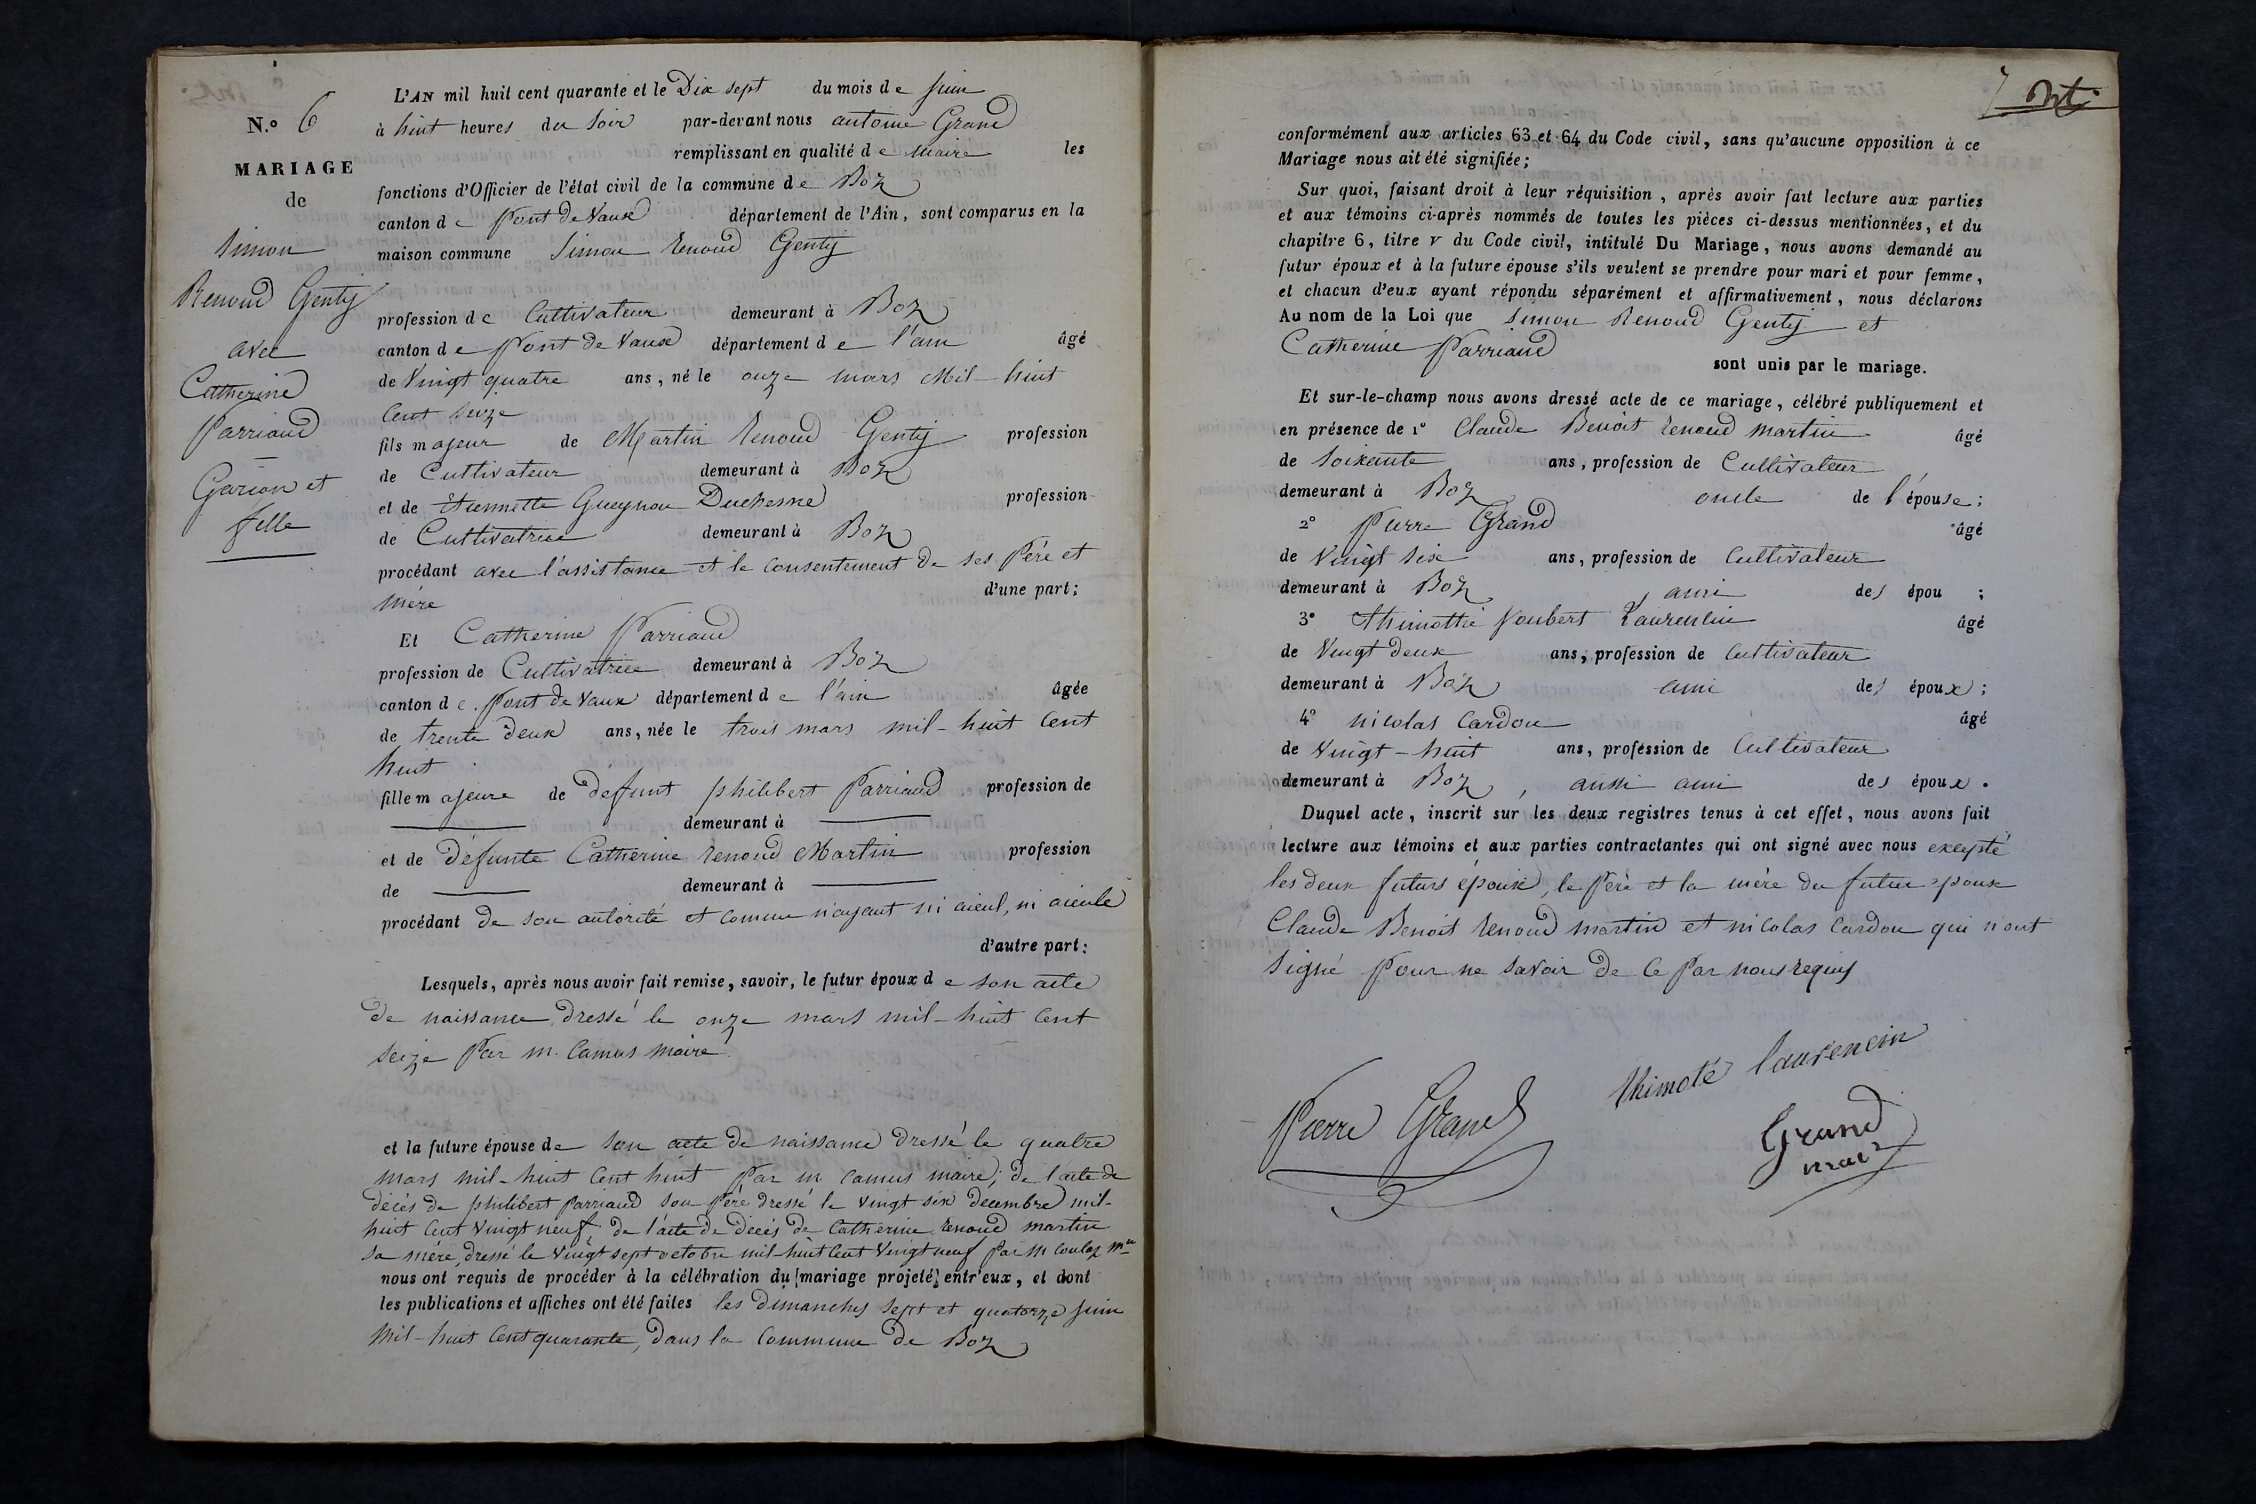 N.o 6
MARIAGE
de
Simon
Renoud Gentij
avec
Catherine
Parriaud
Garçon et
fille
L'AN mil huit cent quarante et le Dix sept du mois de juin
à huit heures du soir par-devant nous antoine Grand
remplissant en qualité de maire les
fonctions d'Officier de l'état civil de la commune de Boz
canton de Pont de Vaux département de l'Ain, sont comparus en la
maison commune Simon Renoud Gentij
profession de Cultivateur demeurant à Boz
canton de Pont de Vaux département de l'ain âgé
de Vingt quatre ans, né le onze mars Mil-huit
Cent seize
fils majeur de Martin Renoud Gentij profession
de Cultivateur demeurant à Boz
et de Duchesne profession
de Cultivatrice demeurant à Boz
procédant avec l'assistance et le consentement de ses Père et
mère d'une part;
Et Catherine Parriaud
profession de Cultivatrice demeurant à Boz
canton de Pont de Vaux département de l'ain âgée
de trente deux ans, née le trois mars mil-huit cent
huit
fille majeure de défunt philibert Parriaud profession de
demeurant à
et de Défunte Catherine Renoud Martin profession
de demeurant à
procédant de son autorité et comme n'ayant ni aieul, ni aieule
d'autre part:
Lesquels, après nous avoir fait remise, savoir, le futur époux de son acte
de naissance dressé le onze mars mil-huit cent
seize Par m. Camus maire
et la future épouse de son acte de naissance dressé le quatre
mars mil-huit cent huit Par m camus maire; de l'acte de
décès de philibert parriaud son Père dressé le vingt six decembre mil-
huit cent vingt neuf, de l'acte de décès de Catherine Renoud martin
sa mère, dressé le vingt sept octobre mil-huit cent vingt neuf par m
nous ont requis de procéder à la célébration du mariage projeté entr'eux, et dont
les publications et affiches ont été faites les dimanches sept et quatorze juin
Mil-huit cent quarante, dans la commune de Boz
7
conformément aux articles 63 et 64 du Code civil, sans qu'aucune opposition à ce
Mariage nous ait été signifiée;
Sur quoi, faisant droit à leur réquisition, après avoir fait lecture aux parties
et aux témoins ci-après nommés de toutes les pièces ci-dessus mentionnées, et du
chapitre 6, titre v du Code civil, intitulé Du Mariage, nous avons demandé au
futur époux et à la future épouse s'ils veulent se prendre pour mari et pour femme,
et chacun d'eux ayant répondu séparément et affirmativement, nous déclarons
Au nom de la Loi que Simon Renoud Gentij et
Catherine Parriaud
sont unis par le mariage.
Et sur-le-champ nous avons dressé acte de ce mariage, célébré publiquement et
en présence de 1o Claude Benoit Renoud martin âgé
de soixante ans, profession de Cultivateur
demeurant à Boz oncle de l'épouse;
2o Pierre Grand âgé
de Vingt six ans, profession de Cultivateur
demeurant à Boz ami des épou ;
3o Thimothé Joubert Laurentin âgé
de Vingt deux ans, profession de Cultivateur
demeurant à Boz ami des époux;
4o nicolas Cardon âgé
de Vingt-huit ans, profession de Cultivateur
demeurant à Boz, aussi ami des époux.
Duquel acte, inscrit sur les deux registres tenus à cet effet, nous avons fait
lecture aux témoins et aux parties contractantes qui ont signé avec nous excepté
les deux futurs époux, le Père et la mère du futur époux
Claude Benoit Renoud martin et nicolas Cardon qui n'ont
signé Pour ne savoir de ce Par nous requis
thimoté laurencin
Pierre Grand
Grand
maire